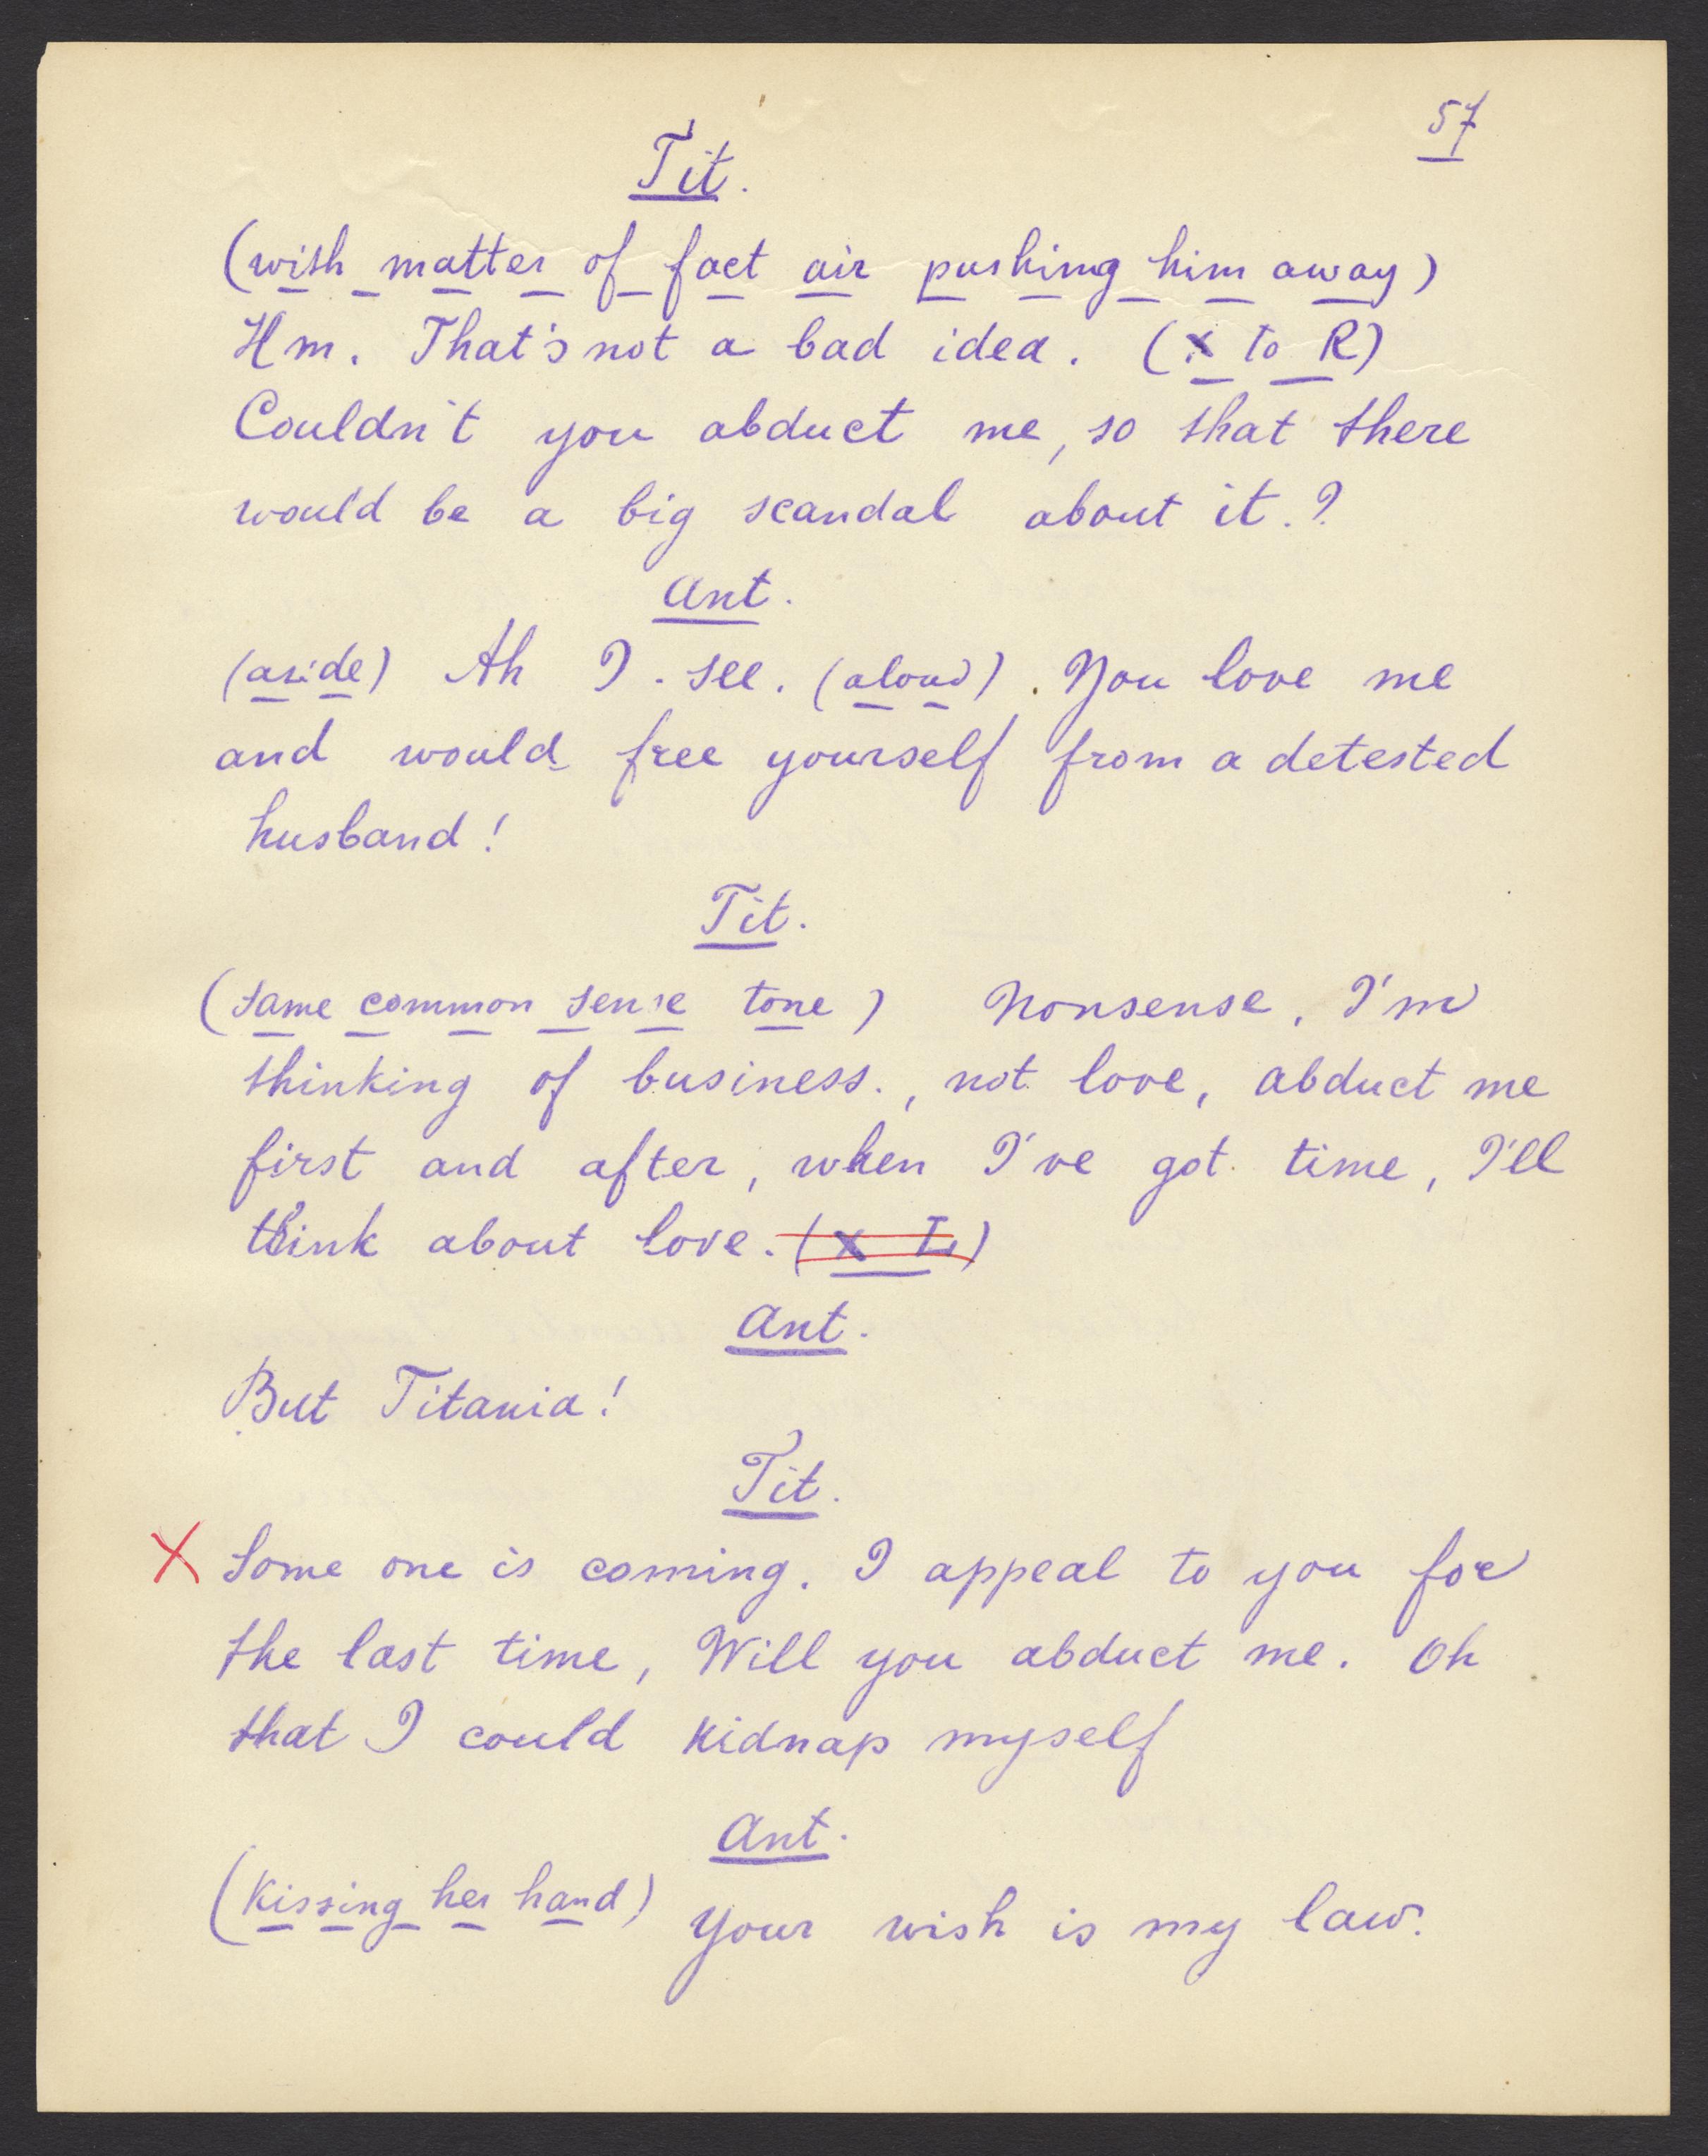 57
Tit.
(with matter of fact air pushing him away)
Hm. That's not a bad idea. (X to R)
Couldn't you abduct me, so that there
would be a big scandal about it.?
Ant.
(aside) Ah I. see. (aloud). You love me
and would free yourself from a detested
husband!
Tit.
(same common sense tone) Nonsense, I'm
thinking of business., not love, abduct me
first and after, when I've got time, I'll
think about love. (X L)
Ant.
But Titania!
Tit.
X Some one is coming. I appeal to you for
the last time, Will you abduct me. Oh
that I could kidnap myself
Ant.
(Kissing her hand) Your wish is my law.